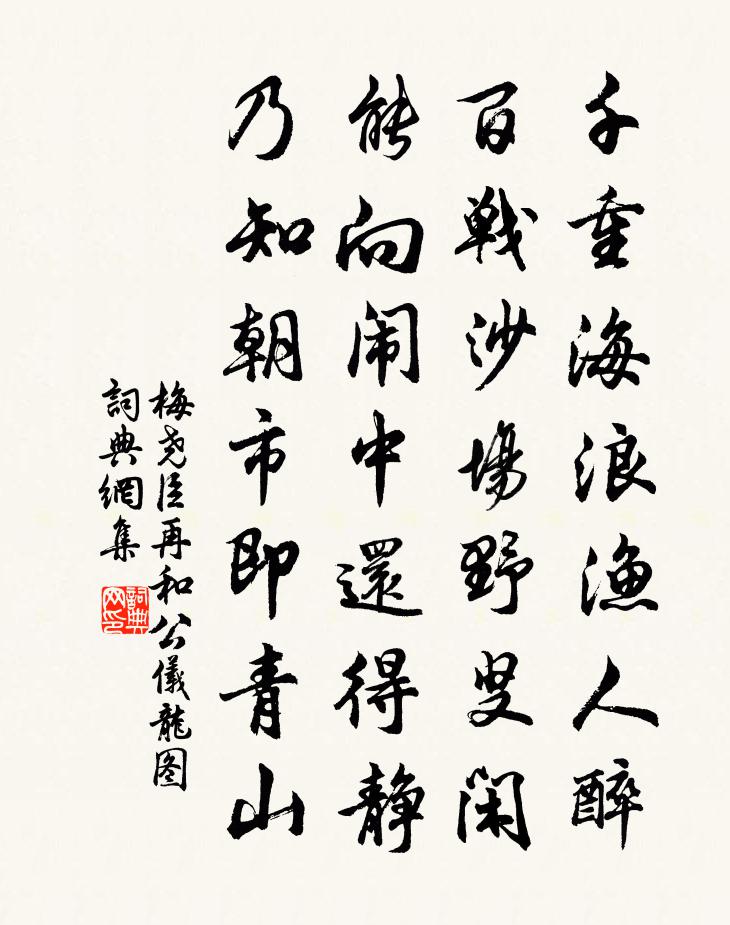 千重海浪渔人醉
百戦沙場野叟闲
能向闹中還得静
乃知朝市即青山
梅尧臣再和公儀龍图
詞典網集
詞典网印